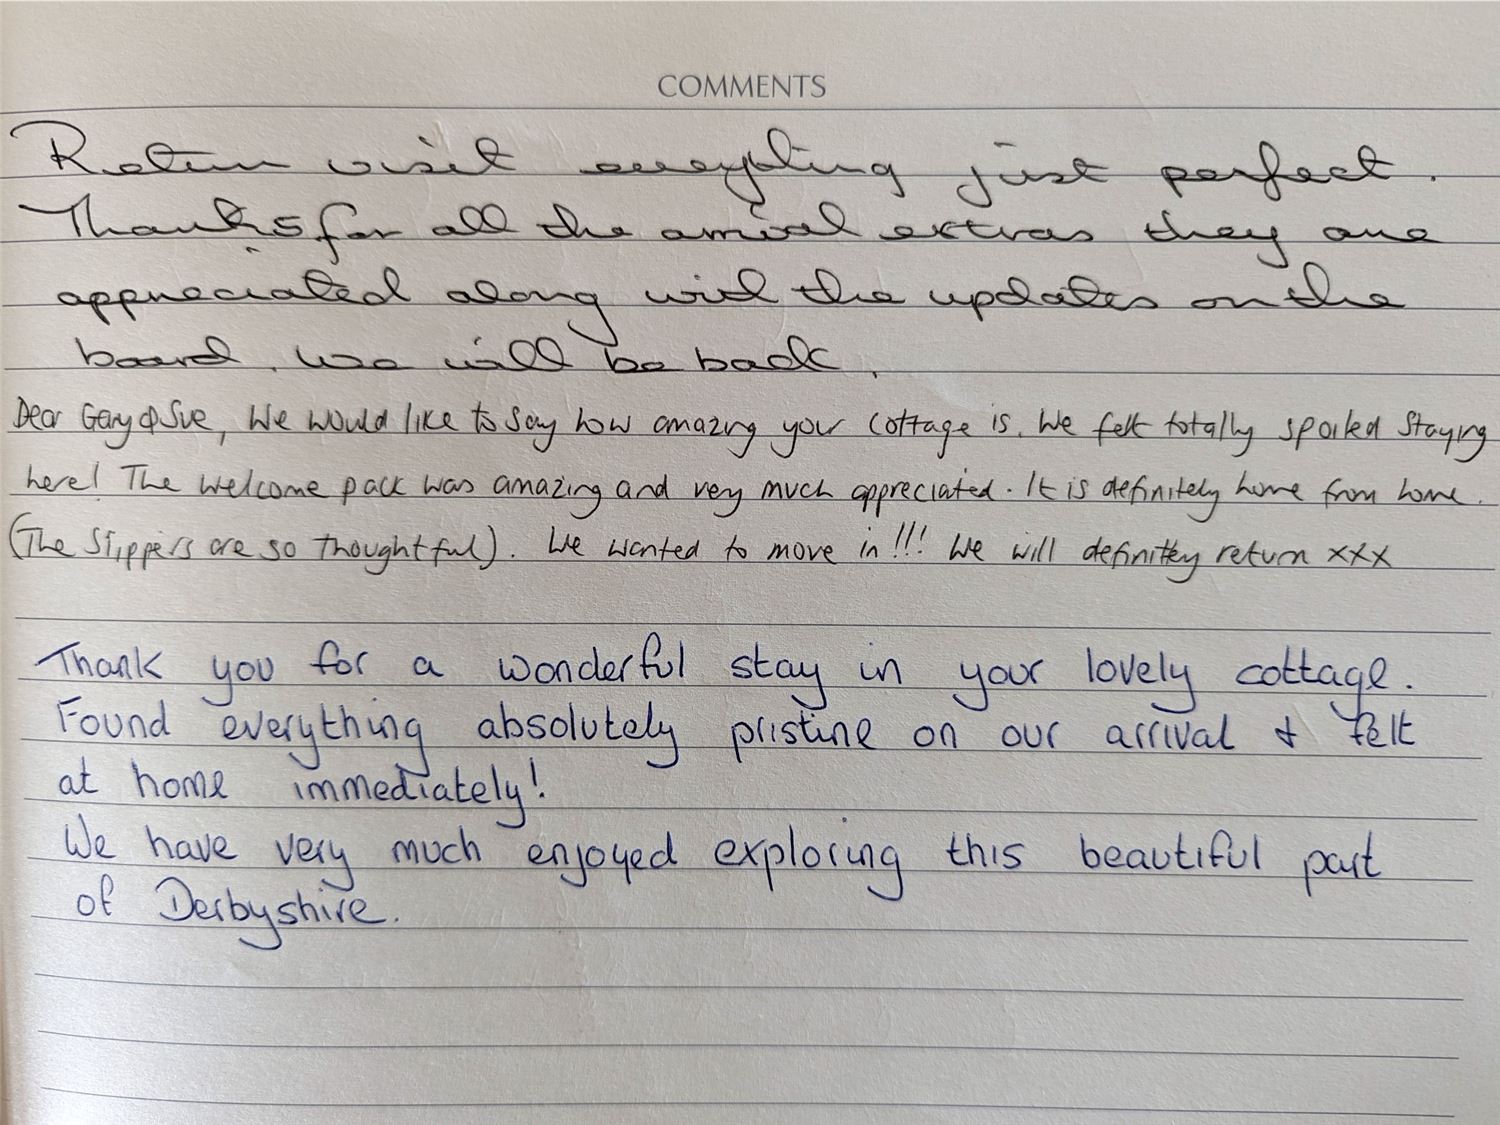 COMMENTS
Return visit everything just perfect.
Thanks for all the arrival extras they are
appreciated along with the updates on the
board. We will be back.
Dear Gary & Sue, We would like to say how amazing your cottage is. We felt totally spoiled staying
here! The welcome pack was amazing and very much appreciated. It is definitely home from home.
(The Slippers are so thoughtful). We wanted to move in!!! We will definitley return xxx
Thank you for a wonderful stay in your lovely cottage.
Found everything absolutely pristine on our arrival & felt
at home immediately!
We have very much enjoyed exploring this beautiful part
of Derbyshire.